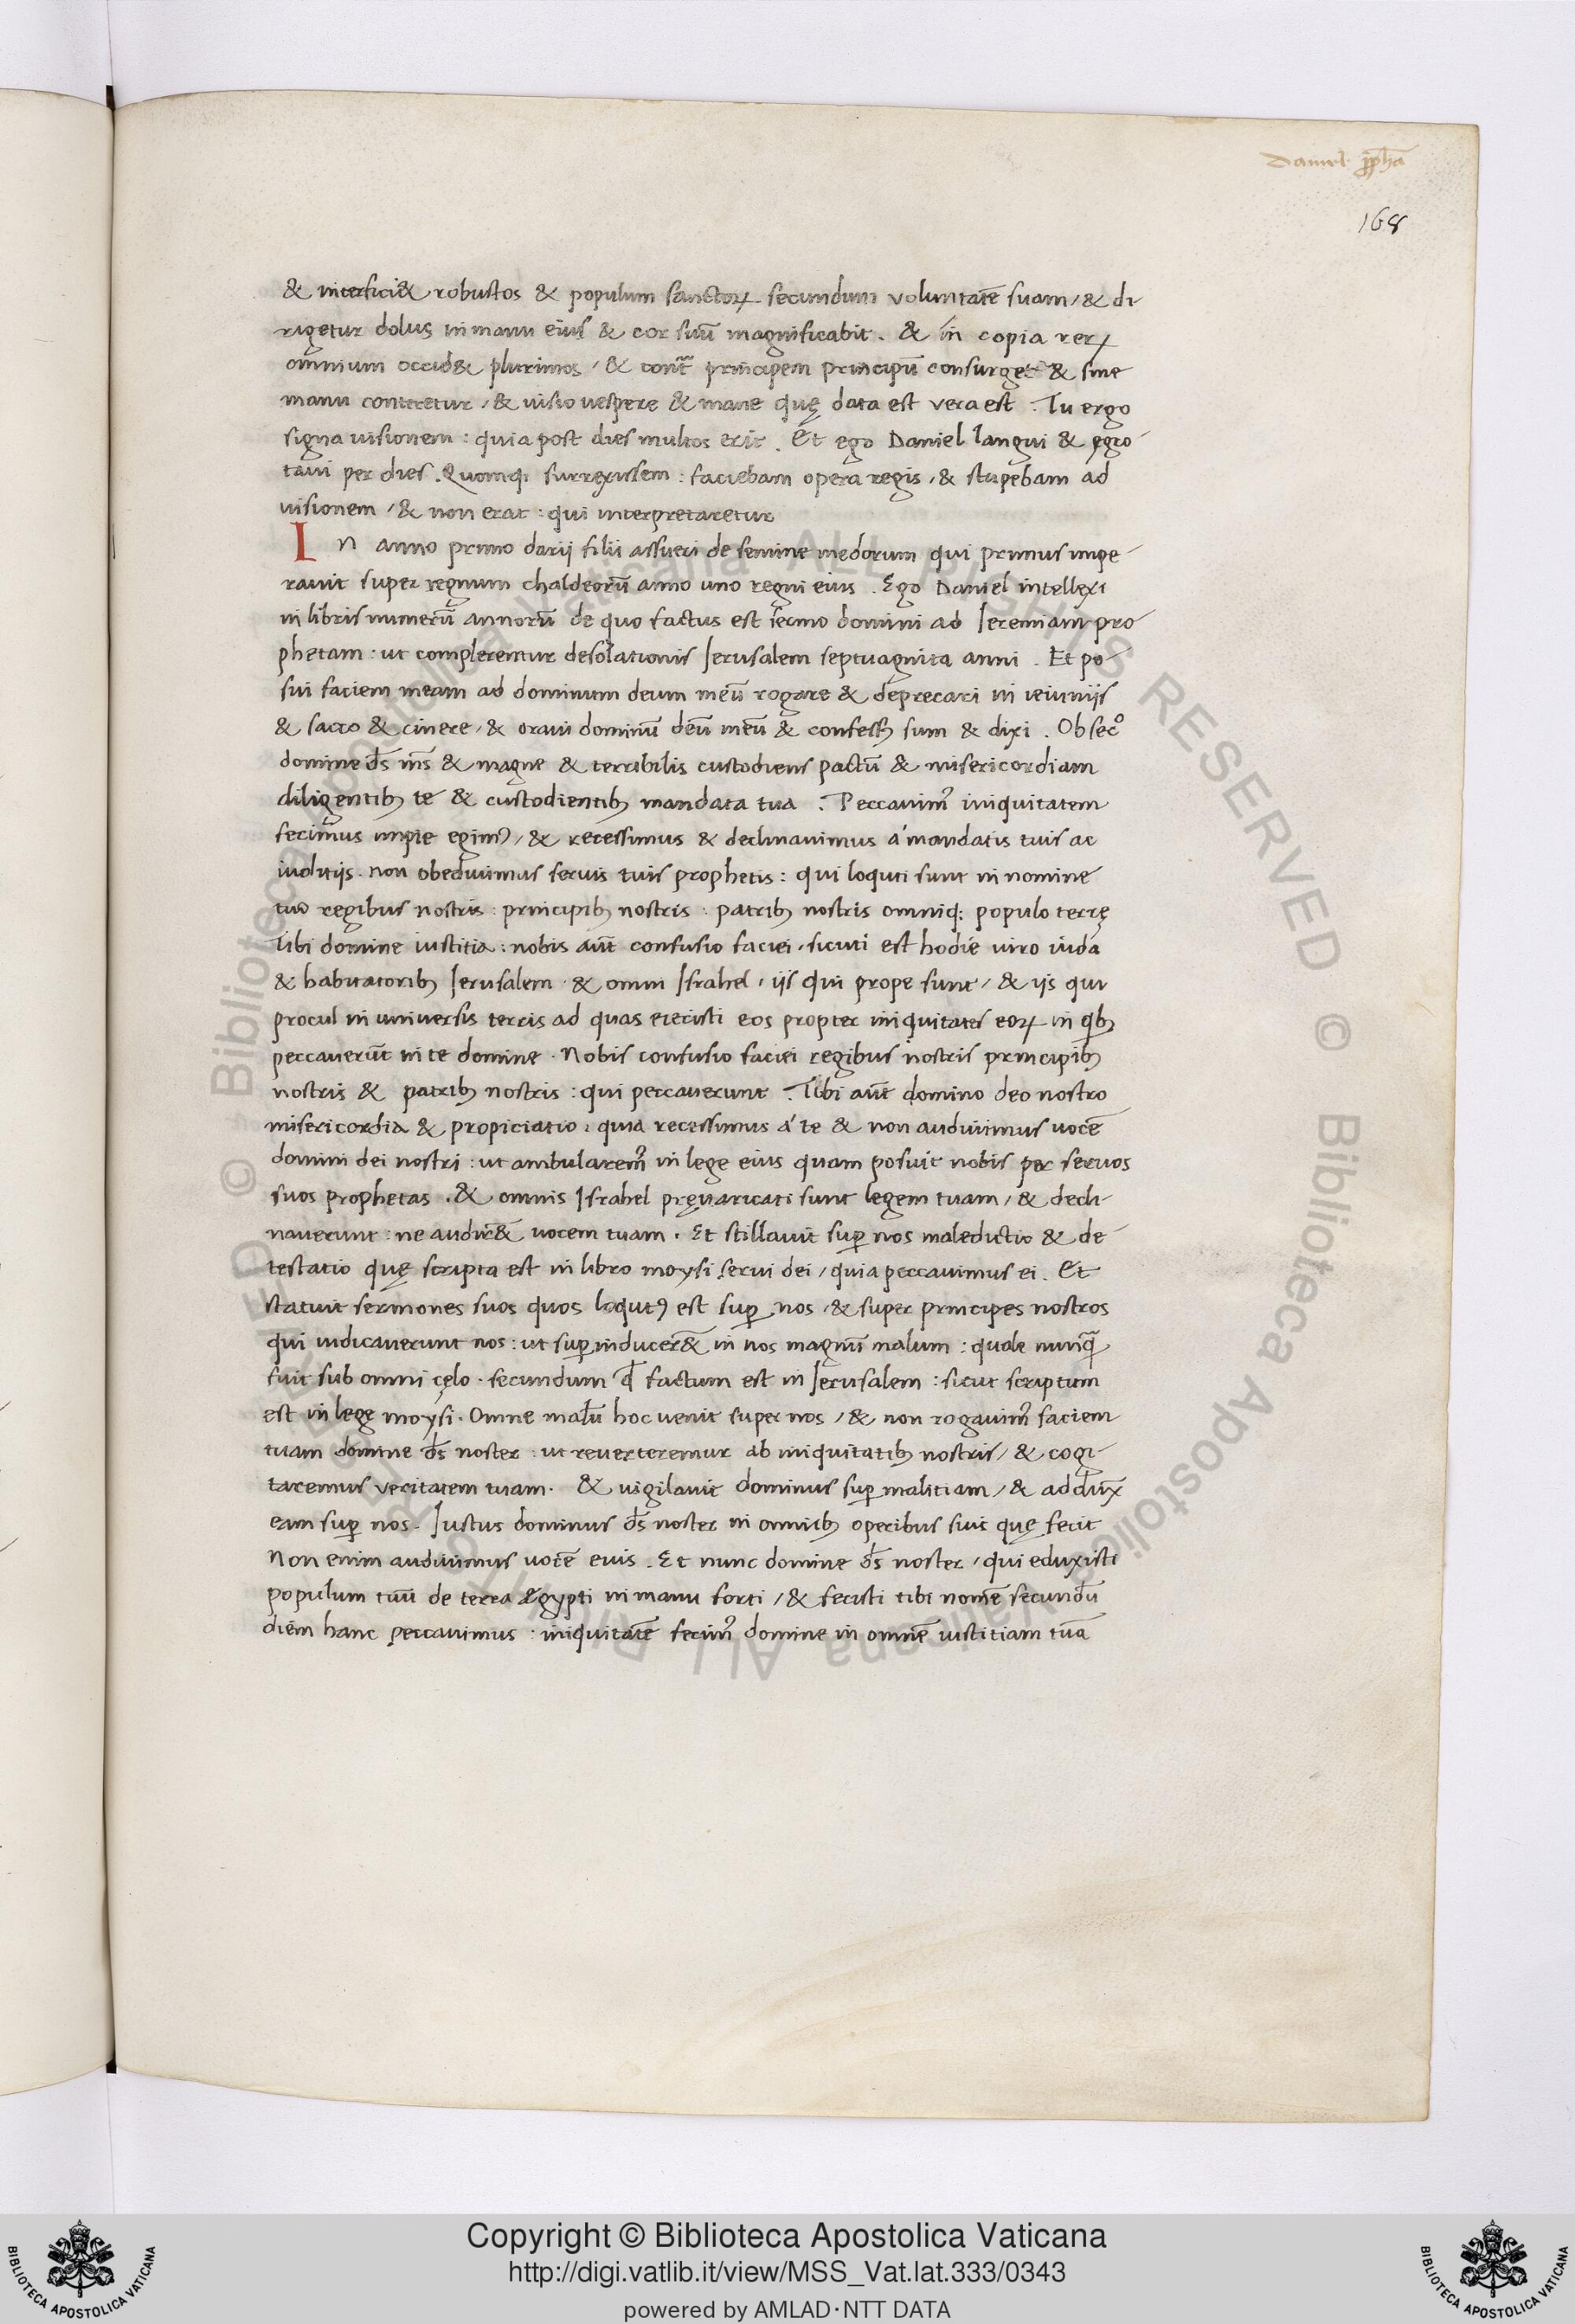 Daniel ꝓph̄a
168
& interfici& robustos & populum sanctoꝝ secundum voluntatē suam / & di-
rigetur dolus in manu eius & cor suū magnificabit . & in copia reꝝ
omnium occid& plurimos / & cont̄ principem principū consurget & sine
manu conteretur / & uisio uespere & mane quę data est vera est . Tu ergo
signa uisionem : quia post dies multos erit . Et ego Daniel langui & ęgro-
taui per dies . Quomq; surrexissem : faciebam opera regis / & stupebam ad
uisionem / & non erat : qui interpretaretur
In anno primo darij filii assueri de semine medorum qui primus impe-
rauit super regnum chaldeorū anno uno regni eius . Ego Daniel intellexi
in libris numerū annorū de quo factus est sermo domini ad Ieremiam pro
phetam : ut complerentur desolationis Ierusalem septuaginta anni . Et po-
sui faciem meam ad dominum deum meū rogare & deprecari in ieiunijs
& sacco & cinere / & oraui dominū deū meū & confessꝫ sum & dixi . Obsecº
domine d̄s m̄s & magne & terribilis custodiens pactū & misericordiam
diligentibꝫ te & custodientibꝫ mandata tua . Peccauimꝰ iniquitatem
fecimus impie egimꝰ / & recessimus & declinauimus á mandatis tuis ac
iuditijs . non obediuimus seruis tuis prophetis : qui loquti sunt in nomine
tuo regibus nostris : principibꝫ nostris : patribꝫ nostris omniq; populo terrę
Tibi domine iustitia : nobis aūt confusio faciei . sicuti est hodie uiro iuda
& habitatoribꝫ Ierusalem . & omni Israhel / ijs qui prope sunt / & ijs qui
procul in uniuersis terris ad quas eiecisti eos propter iniquitates eoꝝ in qͥbꝫ
peccauerūt in te domine . Nobis confusio faciei regibus nostris principibꝫ
nostris & patribꝫ nostris : qui peccauerunt . Tibi aūt domino deo nostro
misericordia & propiciatio : quia recessimus á te & non audiuimus uocē
domini dei nostri : ut ambularemꝰ in lege eius quam posuit nobis per seruos
suos prophetas . & omnis Israhel pręuaricati sunt legem tuam / & decli-
nauerunt : ne audir&̄ uocem tuam . Et stillauit suꝑ nos maledictio & de-
testatio quę scripta est in libro moysi serui dei / quia peccauimus ei . Et
statuit sermones suos quos loqutꝰ est suꝑ nos / & super principes nostros
qui iudicauerunt nos : ut suꝑinducer&̄ in nos magnū malum : quale nunqᷓ
fuit sub omni cęlo . secundum qđ factum est in Ierusalem : sicut scriptum
est in lege moysi . Omne malū hoc uenit super nos / & non rogauimꝰ faciem
tuam domine d̄s noster : ut reuerteremur ab iniquitatibꝫ nostris / & cogi-
taremus veritatem tuam . & uigilauit dominus suꝑ malitiam / & addux̄
eam suꝑ nos . Iustus dominus d̄s noster in omnibꝫ operibus suis quę fecit
Non enim audiuimus uocē euis . Et nunc domine d̄s noster / qui eduxisti
populum tuū de terra ægypti in manu forti / & fecisti tibi nomē secundū
diem hanc peccauimus : iniquitatē fecimꝰ domine in omnē iustitiam tuā
© Biblioteca Apostolica Vaticana ALL RIGHTS RESERVED © Biblioteca Apostolica Vaticana ALL RIGHTS RESERVED
Copyright © Biblioteca Apostolica Vaticana
http://digi.vatlib.it/view/MSS_Vat.lat.333/0343
powered by AMLAD·NTT DATA
BIBLIOTECA APOSTOLICA VATICANA
BIBLIOTECA APOSTOLICA VATICANA